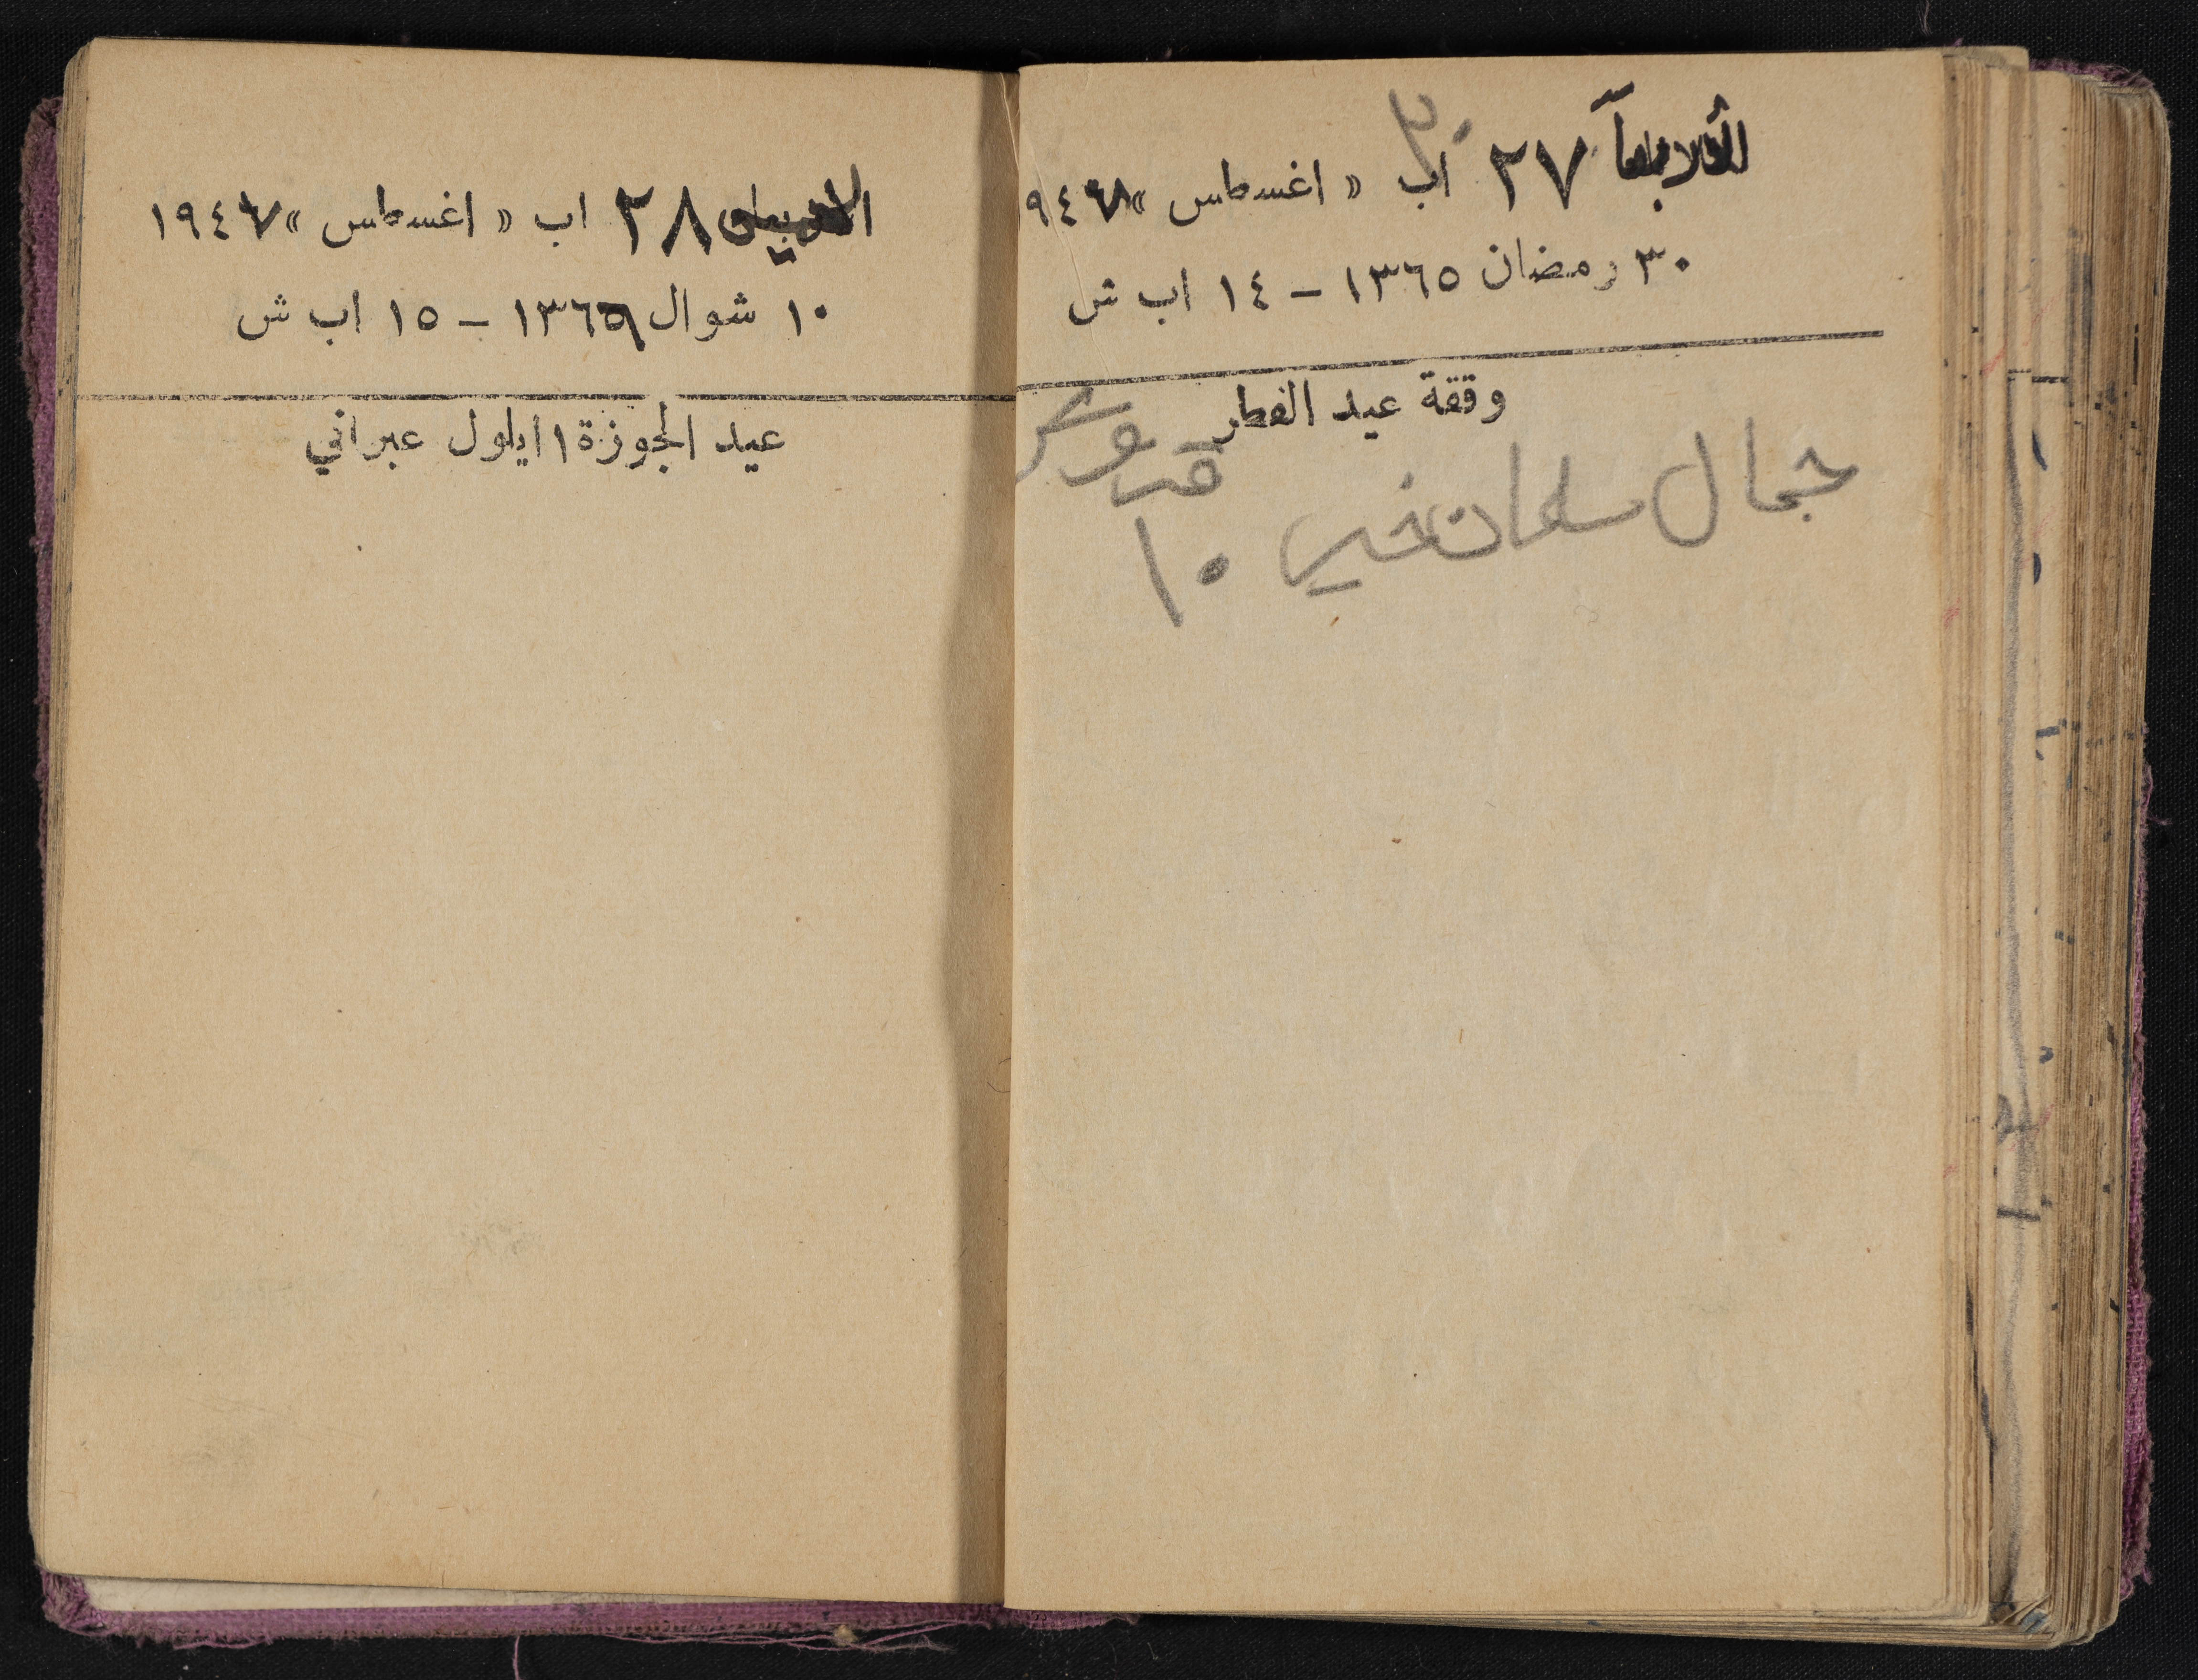 ٣٠
٢٧ اب « اغسطس » ١٩٤٧
٣٠ رمضان ١٣٦٥ – ١٤ اب ش
وقفة عيد الفطر
جمال سلمان خير ١٠
٢٨ اب « اغسطس » ١٩٤٧
١٠ شوال ١٣٦٦ – ١٥ اب ش
عيد الجوزة ١ ايلول عبراني